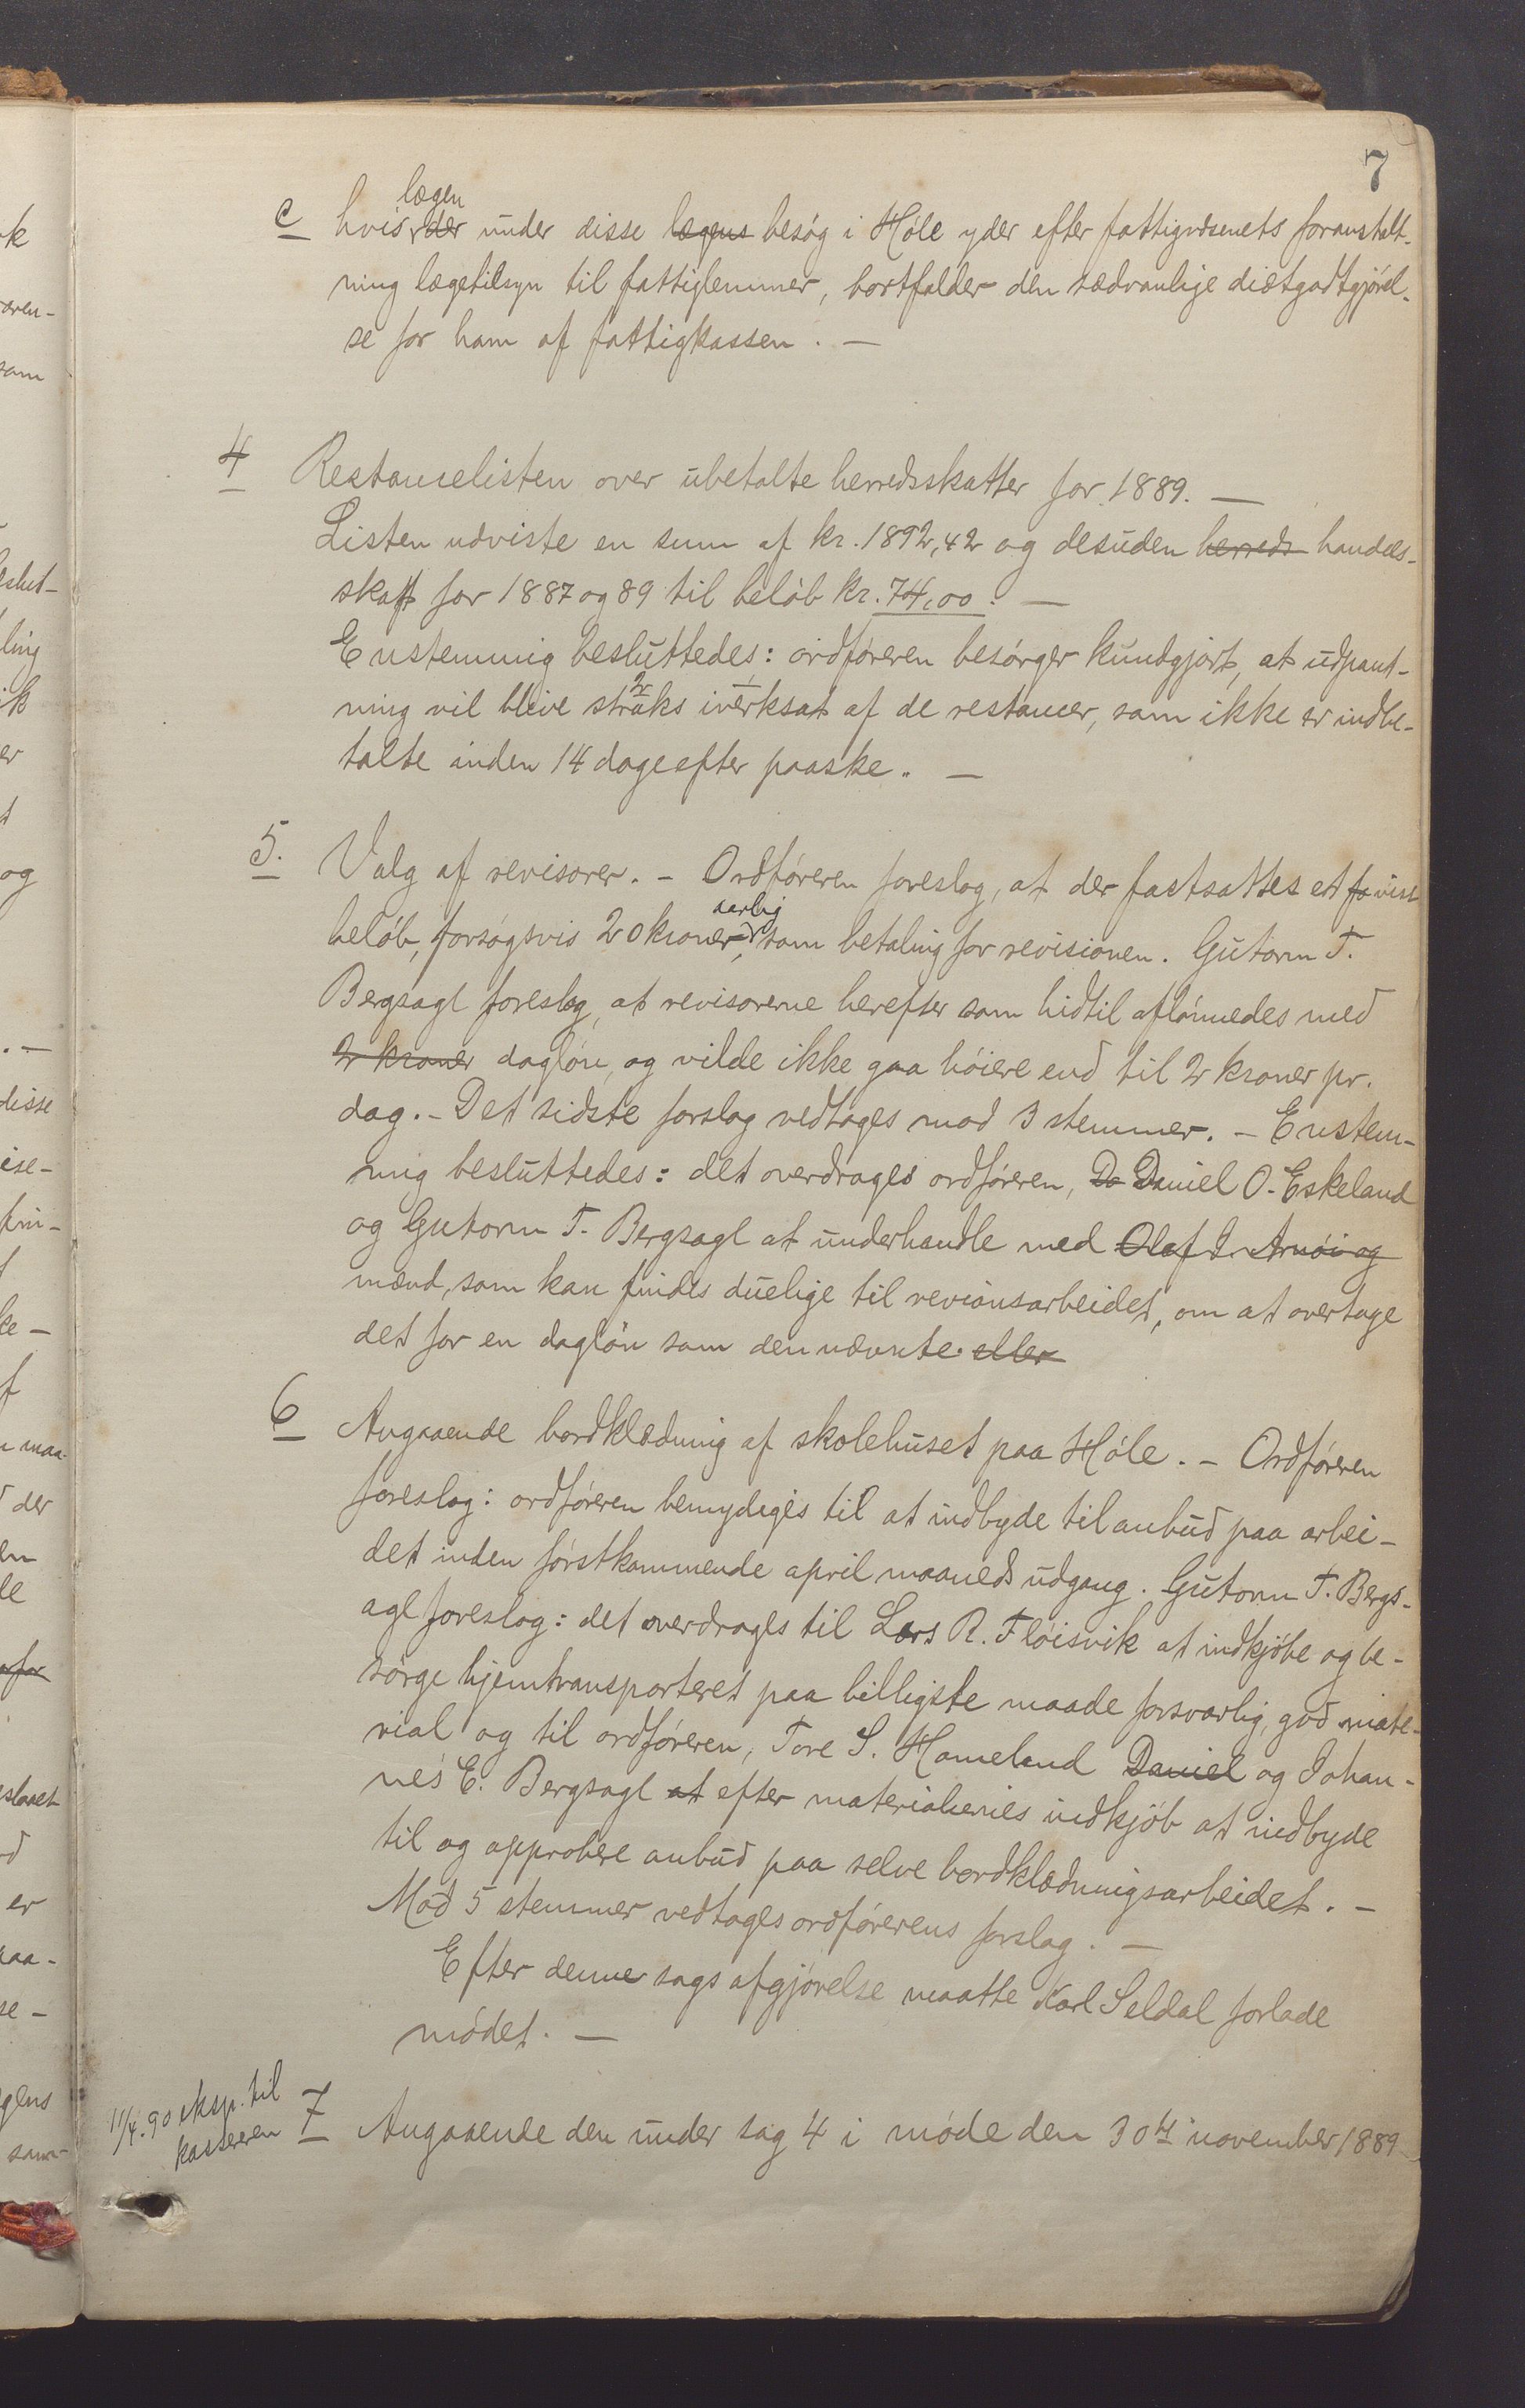 7
c hvis lægen der under disse lægens besøg i Høle yder efter fattigvæsenets foranstalt-
ning lægetilsyn til fattiglemmer, bortfalder den sædvanlige diætgodtgjørel-
se for ham af fattigkassen. —
4 Restancelisten over ubetalte herredsskatter for 1889. —
Listen udviste en sum af kr. 1892,42 og desuden herreds handels-
skatt for 1887 og 89 til beløb kr. 74,00. —
Enstemmig besluttedes: ordføreren besørger kundgjort, at udpant-
ning vil blive straks iverksat af de restancer, som ikke er indbe-
talte inden 14 dage efter paaske. —
5. Valg af revisorer. – Ordføreren foreslog, at der fastsattes et fo vist
beløb, forsøgsvis 20 kroner aarlig, som betaling for revisionen. Gutorm T.
Bergsagl foreslog, at revisorerne herefter som hidtil aflønnedes med
2 kroner dagløn, og vilde ikke gaa høiere end til 2 kroner pr.
dag. – Det sidste forslag vedtages mod 3 stemmer. – Enstem-
mig besluttedes: det overdrages ordføreren, Da Daniel O. Eskeland
og Gutorm T. Bergsagl at underhandle med Olaf I. Arnøi og
mænd, som kan findes duelige til revionsarbeidet, om at overtage
det for en dagløn som den nævnte. eller
6 Angaaende bordklædning af skolehuset paa Høle. – Ordføreren
foreslog: ordføreren bemydiges til at indbyde til anbud paa arbei-
det inden førstkommende april maaneds udgang. Gutorm T. Bergs-
agl foreslog: det overdrages til Lars R. Fløisvik at indkjøbe og be-
sørge hjemtransporteret paa billigste maade forsvarlig, god mate-
rial og til ordføreren, Tore S. Hameland Daniel og Johan-
nes E. Bergsagl at efter materialienes indkjøb at indbyde
til og approbere anbud paa selve bordklædningsarbeidet. –
Mod 5 stemmer vedtages ordførerens forslag. —
Efter denne sags afgjørelse maatte Karl Seldal forlade
mødet. —
11/4. 90 eksp. til
kassereren
7 Angaaende den under sag 4 i møde den 30te november 1889